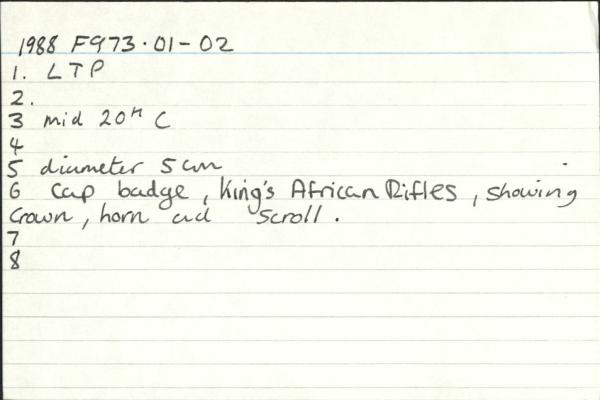 1988 F973.01-02
1. LTP
2.
3 mid 20th C
4
5 diameter 5cm
6 Cap badge, King's African Rifles, showing
Crown, horn and Scroll.
7
8